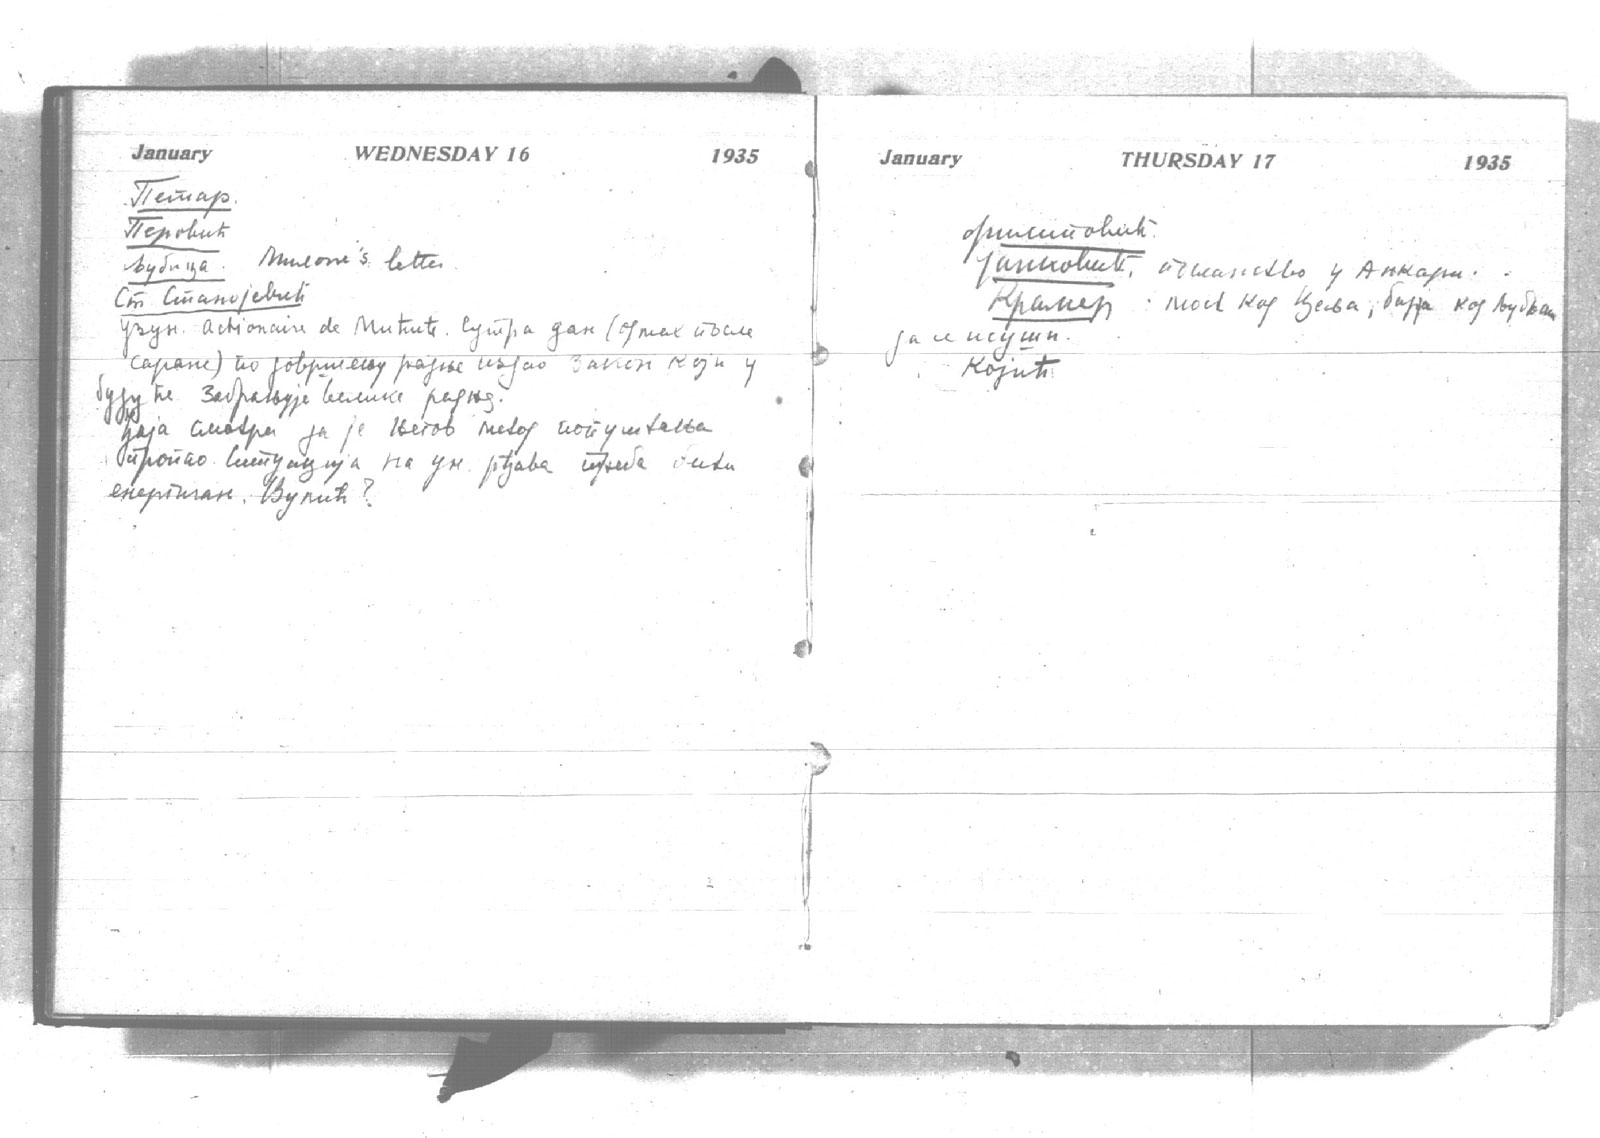 January WEDNESDAY 16 1935
Петар.
Перовић
Љубица. Milone's letter.
Ст. Станојевић
Узун. actionaire de Митић. Сутра дан (одмах после
саране) по довршењу радње издао закон који у
будуће забрањује велике радње.
Раја сматра да је његов метод попуштања
пропао. Ситуација на ун. рђава треба бити
енергичан. Вулић?
January THURSDAY 17 1935
Јанковић, посланство у Анкари.
Крамер : мост код Цеља, бара код Љубљане
да се исуши.
Којић